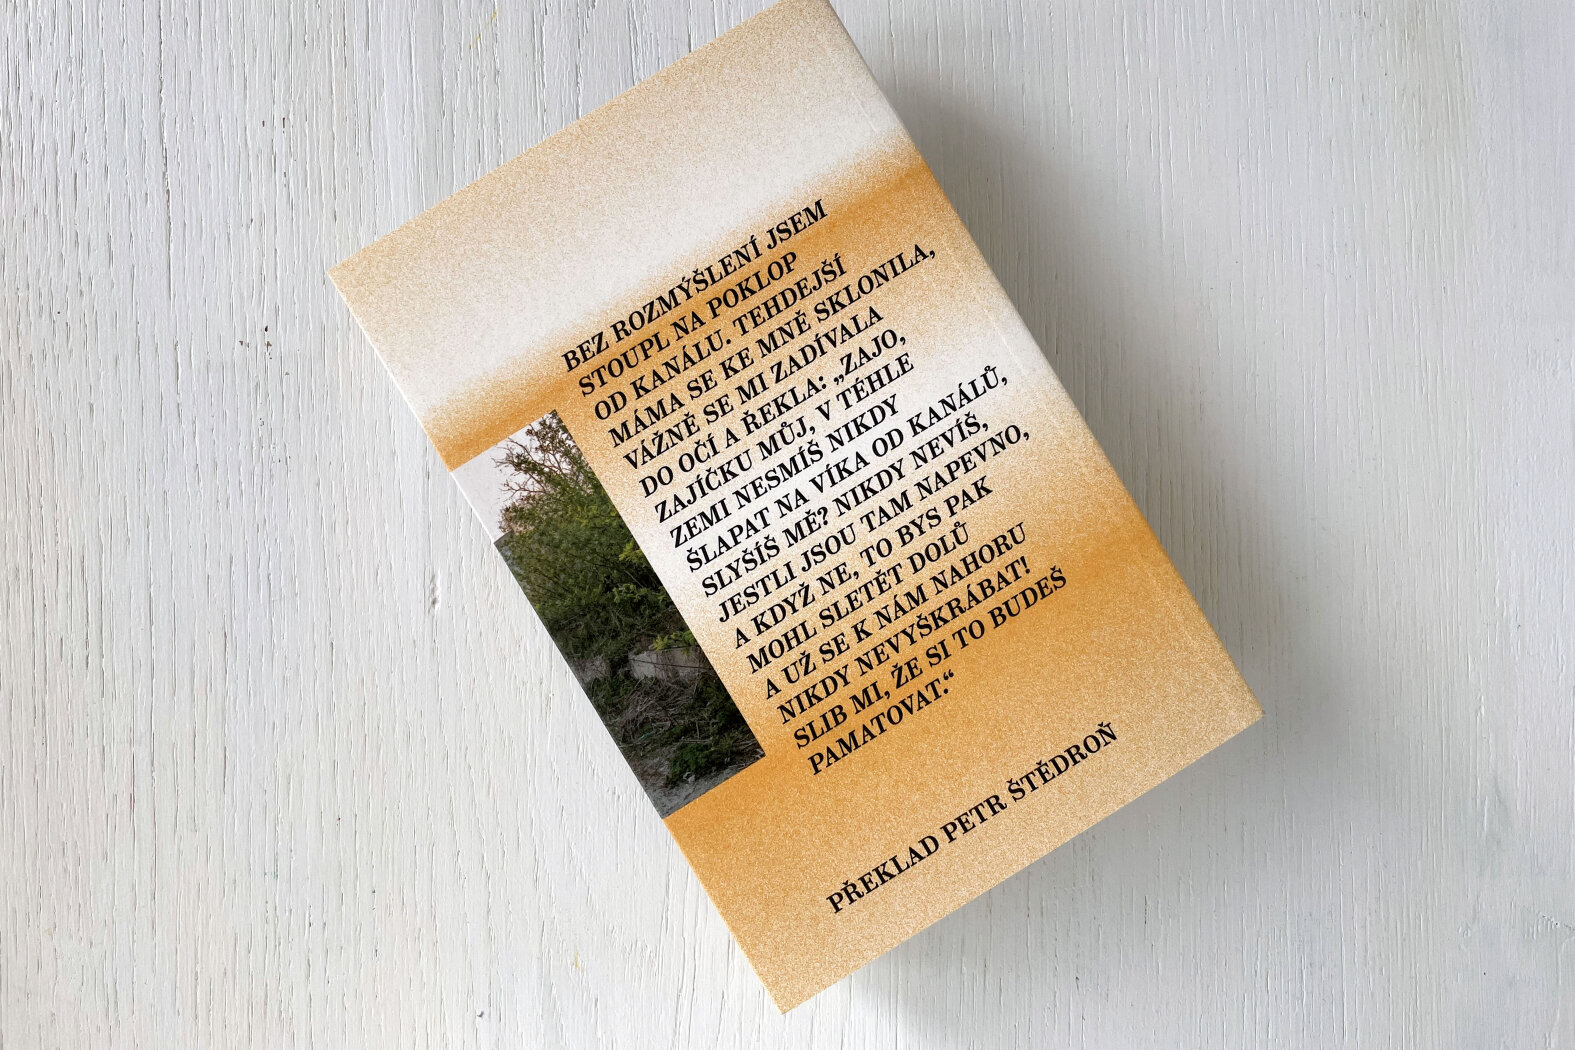 BEZ ROZMÝŠLENÍ JSEM
STOUPL NA POKLOP
OD KANÁLU. TEHDEJŠÍ
MÁMA SE KE MNĚ SKLONILA,
VÁŽNĚ SE MI ZADÍVALA
DO OČÍ A ŘEKLA: „ZAJO,
ZAJÍČKU MŮJ, V TÉHLE
ZEMI NESMÍŠ NIKDY
ŠLAPAT NA VÍKA OD KANÁLŮ,
SLYŠÍŠ MĚ? NIKDY NEVÍŠ,
JESTLI JSOU TAM NAPEVNO,
A KDYŽ NE, TO BYS PAK
MOHL SLETĚT DOLŮ
A UŽ SE K NÁM NAHORU
NIKDY NEVYŠKRÁBAT!
SLIB MI, ŽE SI TO BUDEŠ
PAMATOVAT.“
PŘEKLAD PETR ŠTĚDROŇ